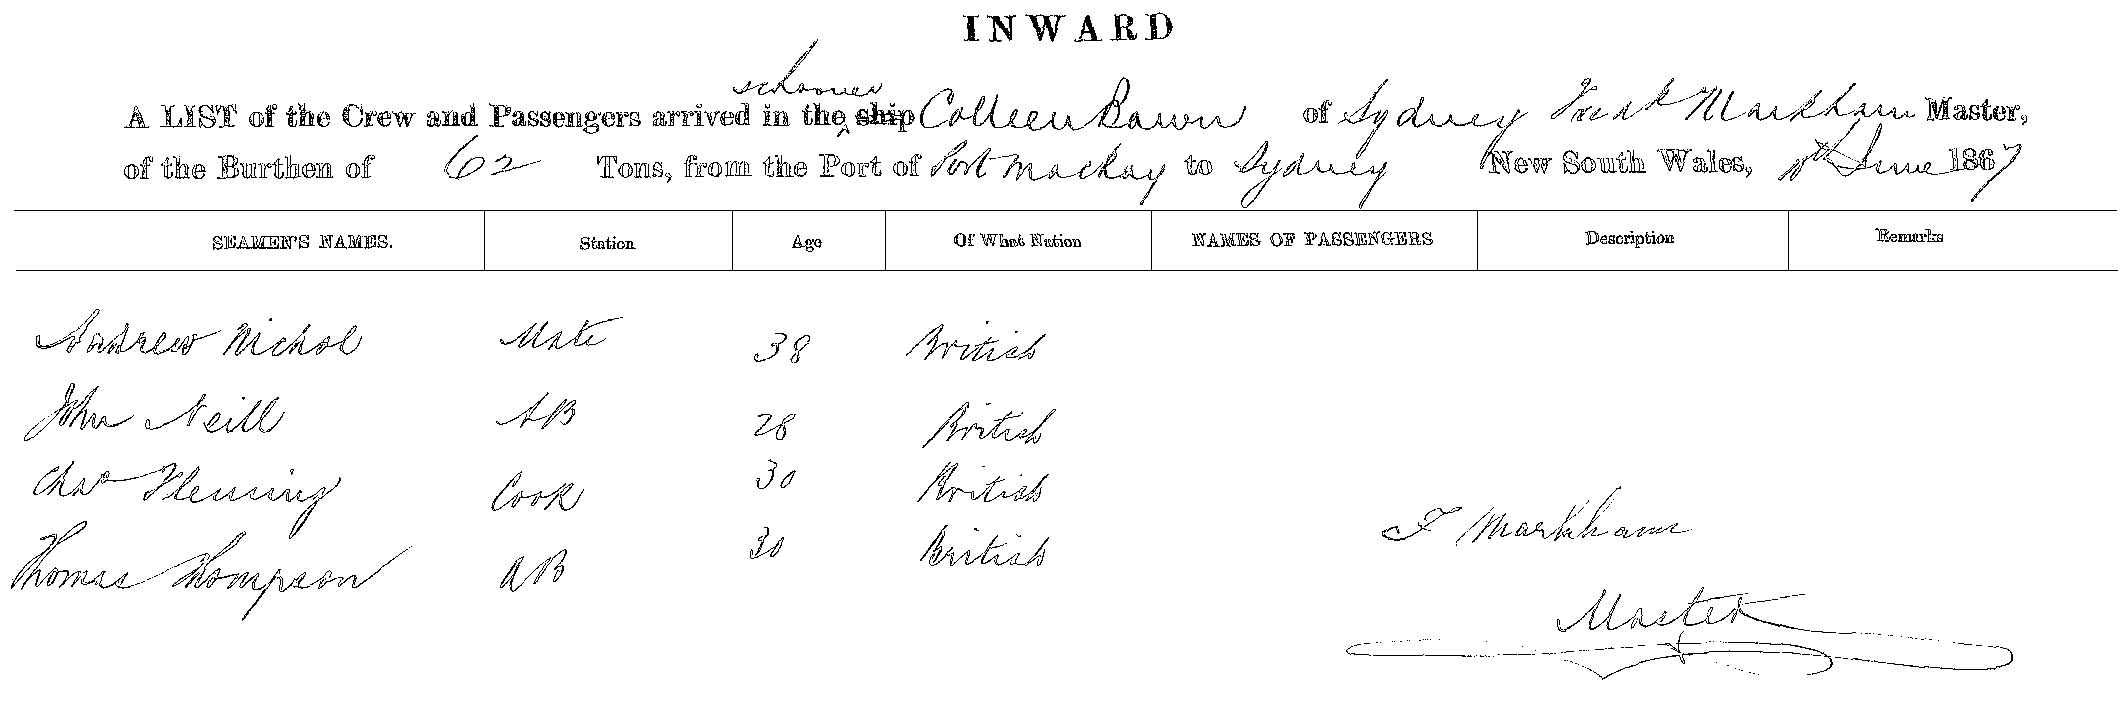 INWARD
schooner
A LIST of the Crew and Passengers arrived in the ship Colleen Bawn of Sydney Fredk Markham Master,
of the Burthen of 62 Tons, from the Port of Port Mackay to Sydney New South Wales, June 1867
SEAMEN'S NAMES. Station Age Of What Nation NAMES OF PASSENGERS Description Remarks
Andrew Nichol Mate 38 British
John Neill AB 28 British
Chas Fleming Cook 30 British
Thomas Thompson AB 30 British
F Markham
Master